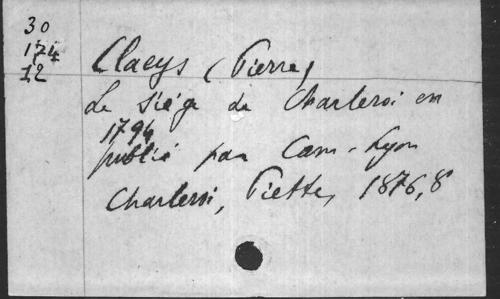 30
174
12
Claeys (Pierre)
Le Siége de Charleroi en
1794
publié par Cam-Lyon
Charleroi, Piette, 1876, 8